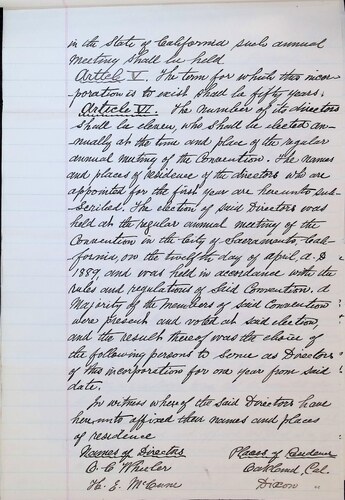 in the State of California such annual
meeting shall be held
Article V. The term for which this incor-
poration is to exist shall be fifty years.
Article VI. The number of its directors
shall be eleven, who shall be elected an-
nually at the time and place of the regular
annual meeting of the Convention. The names
and places of residence of the directors who are
appointed for the first year are hereunto sub-
scribed. The election of said Directors was
held at the regular annual meeting of the
Convention in the City of Sacramento, Cal-
ifornia, on the twelfth day of April, A.D
1889, and was held in accordance with the
rules and regulations of said Convention. A
Majority of the members of said Convention
were present and voted at said election,
and the result thereof was the choice of
the following persons to serve as Directors
of this incorporation for one year from said
date.
In witness whereof the said Directors have
hereunto affixed their names and places
of residence
Names of Directors Places of Residence
O. C. Wheeler Oakland, Cal.
H. E. McCune Dixon